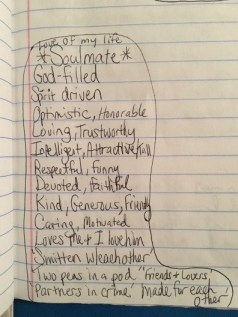 Love of my life
*Soulmate*
God-filled
Spirit driven
Optimistic, Honorable
Loving, Trustworthy,
Intelligent, Attractive, Tall
Respectful, funny
Devoted, Faithful
Kind, Generous, Friendly
Caring, Motivated
Loves me + I love him
Smitten w/eachother
Two peas in a pod "Friends + Lovers"
'Partners in crime' Made for each
other